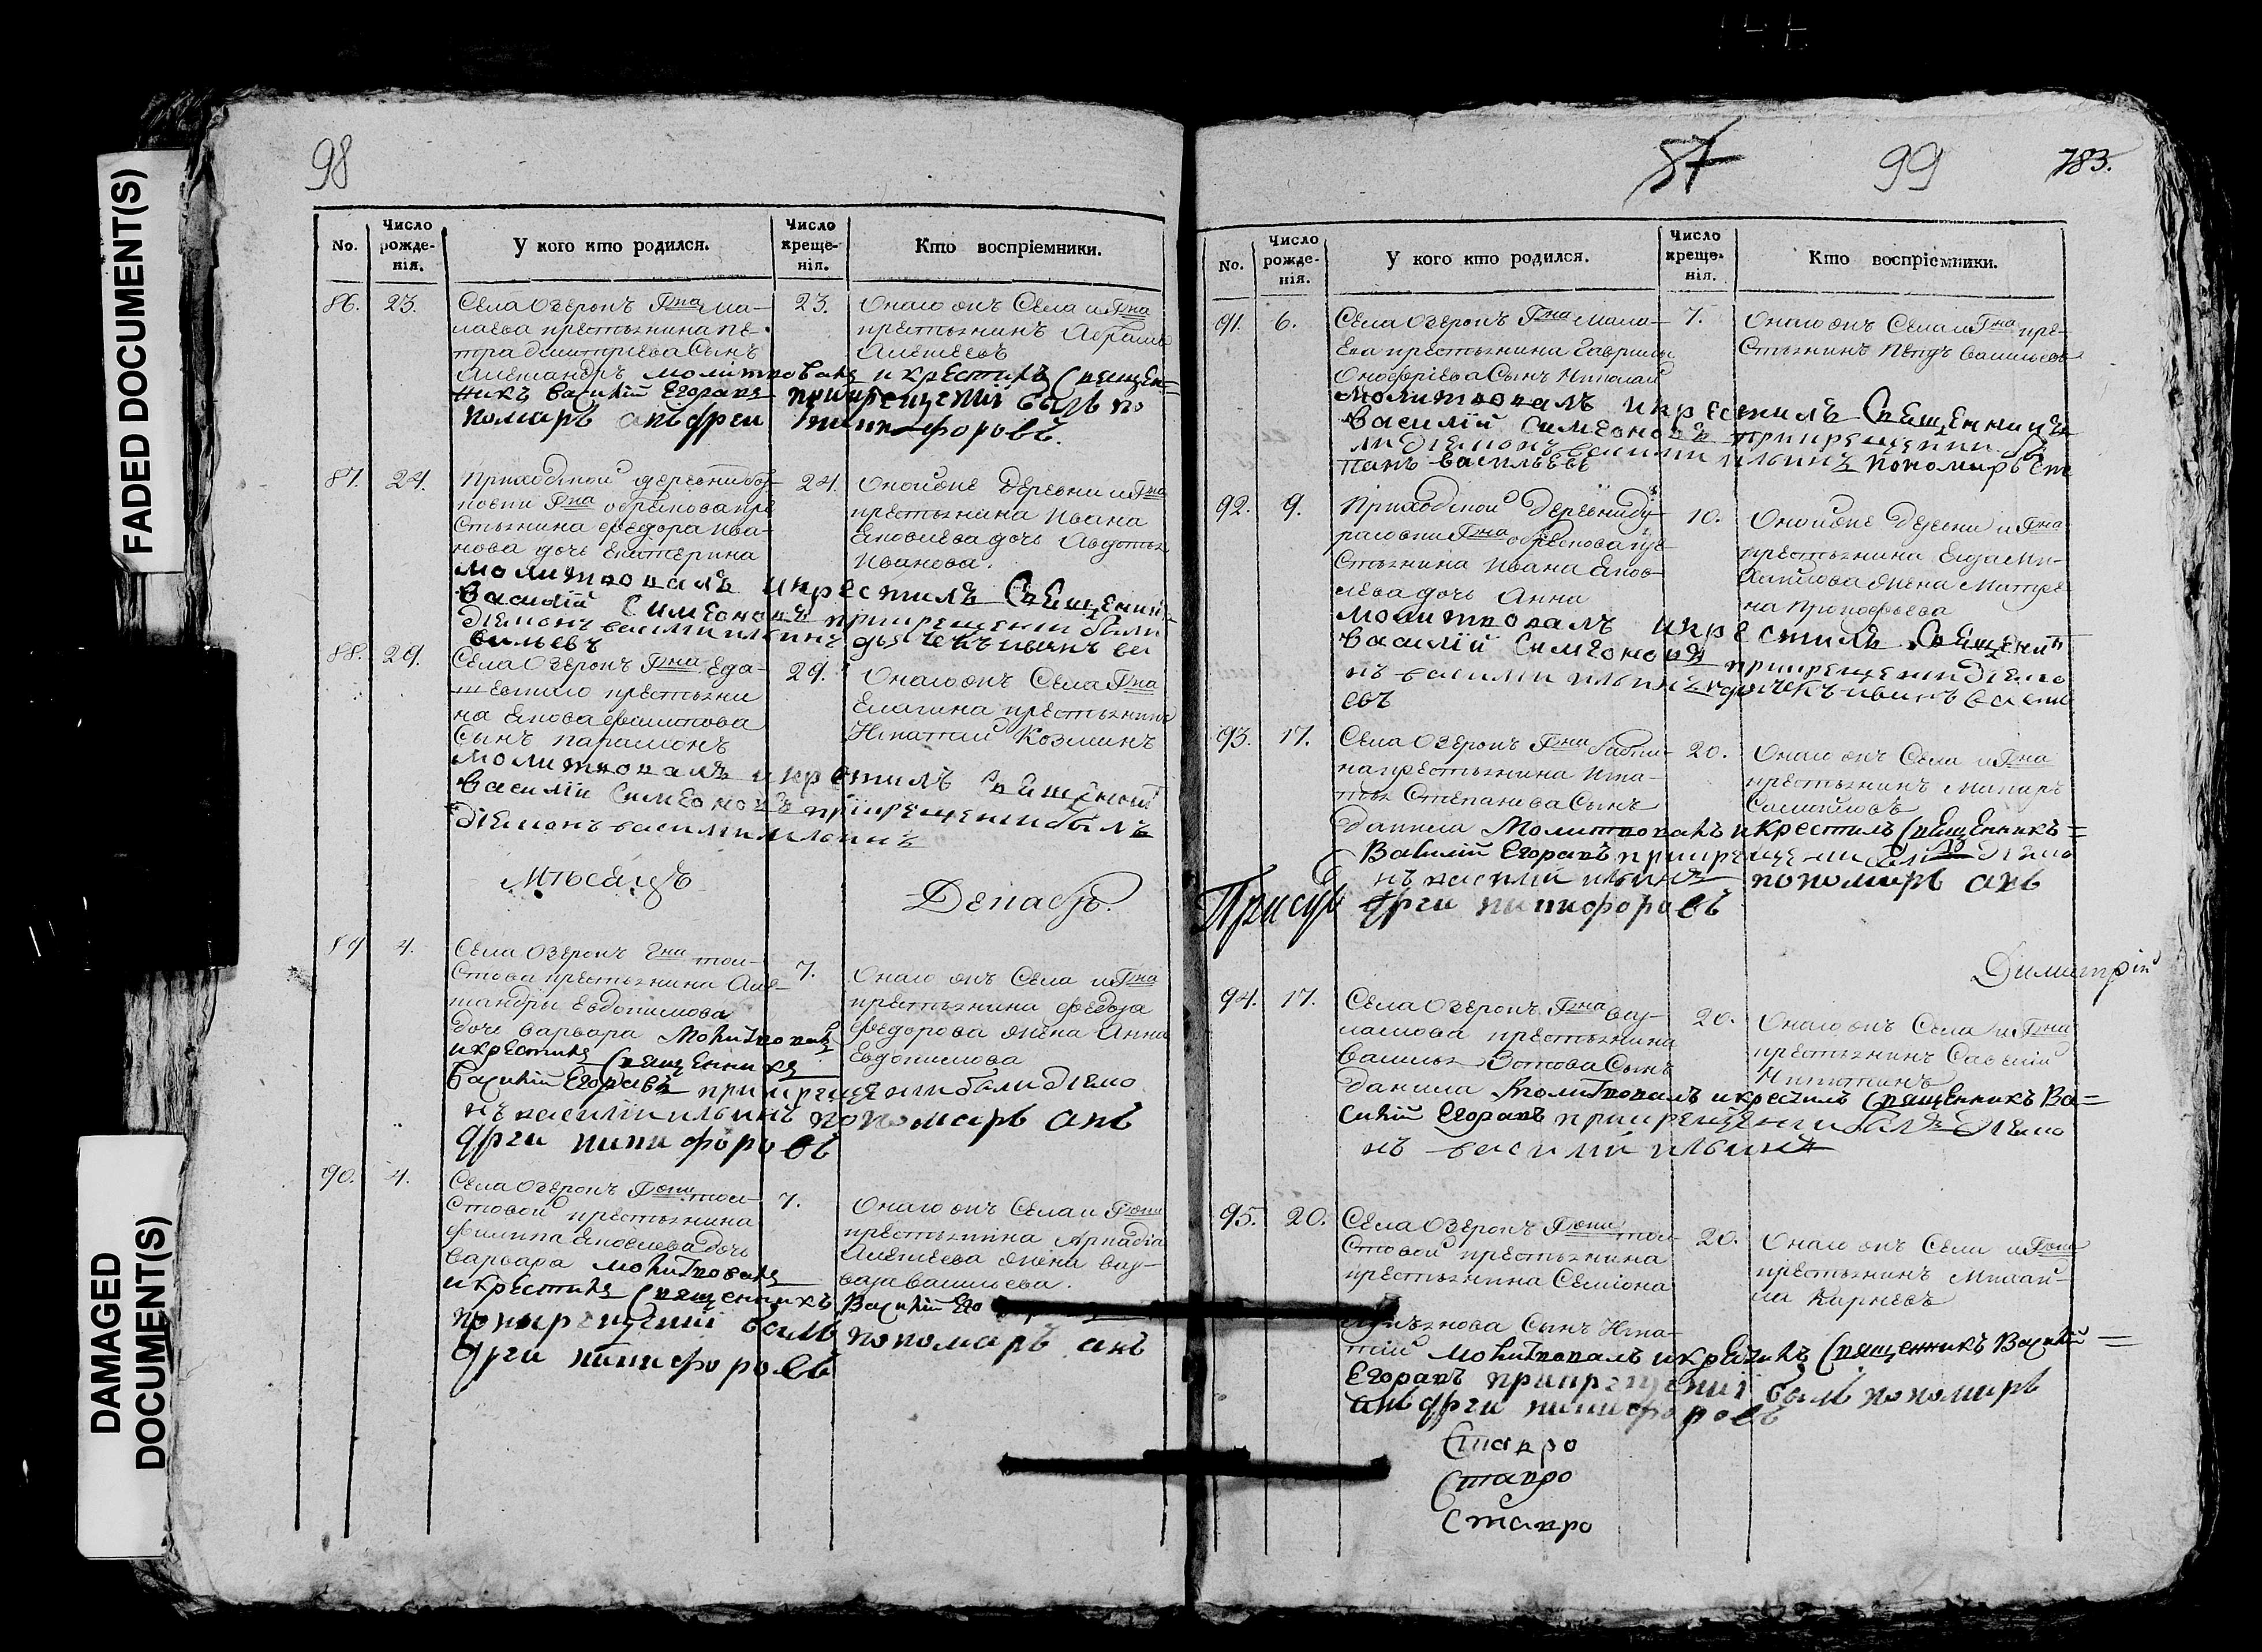 FADED DOCUMENT(S)
DAMAGED
DOCUMENT(S)
98
No.
Число
рожде-
нія.
У кого кто родился.
Число
креще-
нія.
Кто воспріемники.
86. 23.
Села Озерокъ Гна Ма-
лаева крестьянина Пе-
тра Димитріева Сынъ
Александръ молитвовалъ и крестилъ Священ=
никъ Василій Егоравъ прикрещеніи былъ по
номарь Никифоровъ.
23.
Онаго жъ Села и Гна
крестьянинъ Абрамъ
Алексеевъ
87. 24.
Приходской деревни
Гна кре
стьянина Федора Ива-
нова дочь Екатерина
молитвовалъ икрестилъ Священни
Василій Симеоновъ прикрещеніи были
діяконъ василіи ильинъ дьячекъ иванъ ва
сильевъ
24.
Оной же деревни и Гна
крестьянина Ивана
Яковлева дочь Авдотья
Иванова.
88. 29.
Села Озерокъ Гна
крестьяни
на Якова Филипова
Сынъ Парамонъ
молитвовалъ икрестилъ Священни
Василіи Симеоновъ прикрещеніи былъ
діяконъ василіи ильинъ
29.
Онаго жъ Села Гна
Елагина крестьянинъ
Игнатий Козминъ
Мѣсяцъ
Декабрь.
89 4.
Села Озерокъ Гна тол-
стова крестьянина Алек-
Евдокимова
дочь Варвара Молитвовалъ
икрестилъ Священникъ
Василій Егоравъ прикрещеніи были діяко
нъ василіи ильинъ пономарь
Никифоровъ
7.
Онаго жъ Села и Гна
крестьянина Федора
Федорова жена Анна
Евдокимова
90. 4.
Села Озерокъ Гжи тол-
стовой крестьянина
Филипа Яковлева дочь
Варвара молитвовалъ
икрестилъ Священникъ Василій Его
прикрещеніи былъ пономарь
Никифоровъ
7.
Онаго жъ Села и Гжи
крестьянина Аркадія
Алексеева жена Вар-
вара Васильева.
57
99
783.
No.
Число
рожде-
нія.
У кого кто родился.
Число
креще-
нія.
Кто воспріемники.
91. 6.
Села Озерокъ Гна Мала-
ева крестьянина Гаврилы
Онофріева Сынъ Николай
молитвовалъ икрестилъ Священникъ
Василій Симеоновъ прикрещеніи
діяконъ василіи ильинъ пономарь Сте
панъ васильевъ
7.
Онаго жъ Села и Гна кре-
стьянинъ Петръ Васильевъ
92. 9.
Приходской Деревни
Гна кре-
стьянина Ивана Яков-
лева дочь Анна
молитвовалъ икрестилъ Священни
Василій Симеоновъ прикрещеніи діяко
нъ василіи ильинъ дьячекъ иванъ васили
евъ
10.
Онойже Деревни и Гна
крестьянина
жена Матре-
на Прокофьева
93. 17.
Села Озерокъ Гна
крестьянина Игна-
тья Степанова Сынъ
Данила Молитвовалъ икрестилъ Священникъ=
Василій Егоравъ прикрещеніи были діяко
нъ василіи ильинъ пономарь
Никифоровъ
20.
Онаго жъ Села и Гна
крестьянинъ Макаръ
Самойловъ
Димитрій
94. 17.
Села Озерокъ Гна
крестьянина
Василья Зотова Сынъ
Данила Молитвовалъ икрестилъ Священникъ Ва=
силій Егоравъ прикрещеніи былъ діяко
нъ василіи ильинъ
20.
Онаго жъ Села и Гна
крестьянинъ Савелій
Никитинъ
95. 20.
Села Озерокъ Гжи тол-
стовой крестьянина
крестьянина Семіона
Сынъ Игна-
тій Молитвовалъ икрестилъ Священникъ Василій=
Егоравъ прикрещеніи былъ пономарь
Никифоровъ
20.
Онаго жъ Села и Гжи
крестьянинъ Михай-
ла Карнеевъ
Ставро
Ставро
Ставро